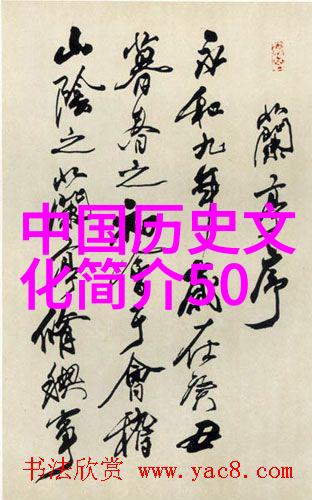 蘭亭序
永和九年歲在癸丑
暮春之初會于會稽
山陰之蘭亭脩禊事
中国历史文
化简介50
书法欣赏 www.yac8.com